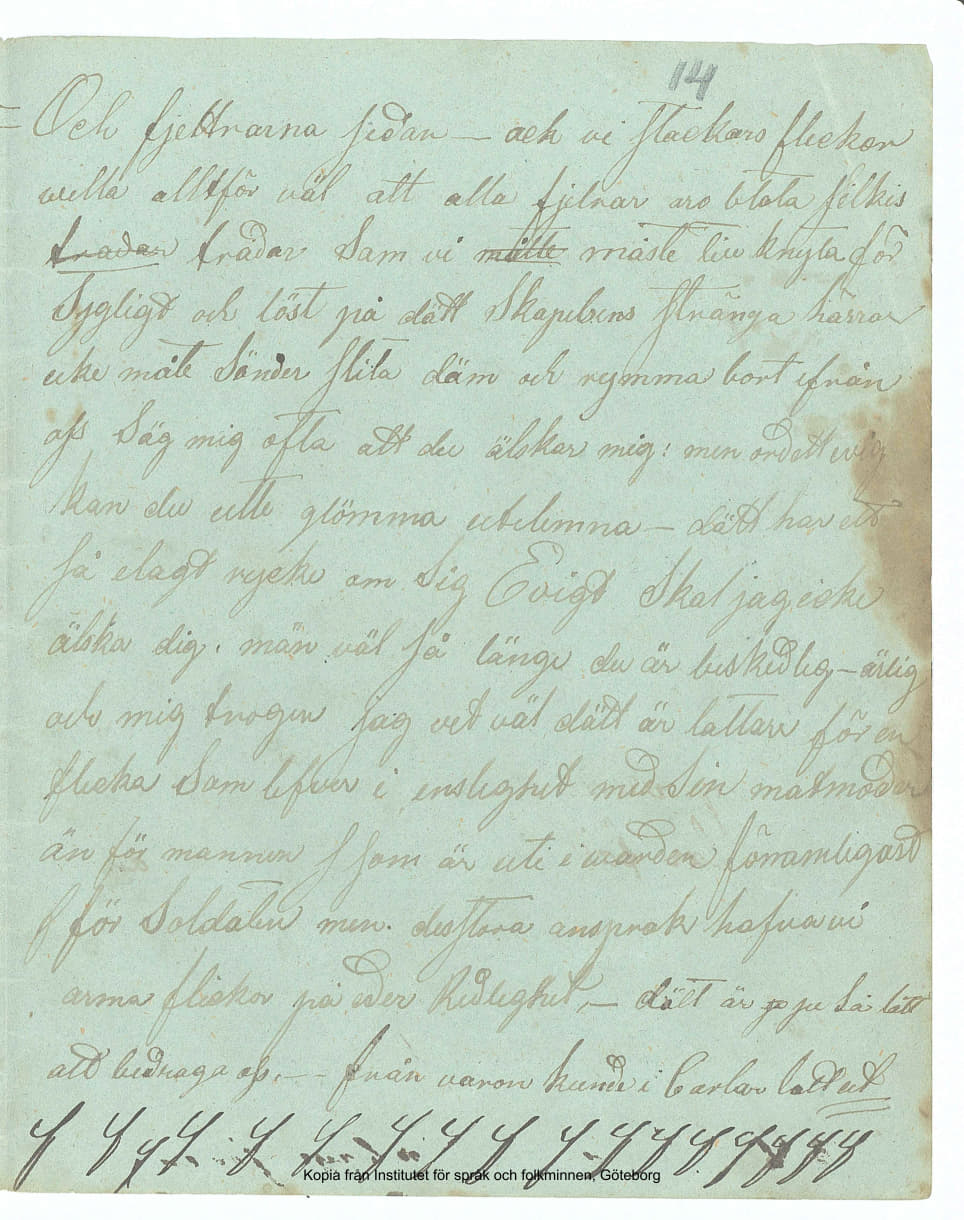 14
Och fjettrarna sedan — ack vi stackars flickor
willa alltför väl att alla fjetrar äro blota silkis
tradar tradar Som vi måtte måste knyta för
Sygligt och löst på dätt Skapelsens Stränga härrar
icke måte Sönder Slita däm och rymma bort ifrån
oss Säg mig ofta att du älskar mig: men ordett evig
kan du utte glömma utelemna — dätt har ett
så elagt rycke om Sig Evigt Skal jag icke
älska dig. män väl så länge du är beskedleg — ärlig
och mig trogen jag vet väl dätt är lattare för en
flicka Som lefver i enslighet med Sin matmoder
än för mannen som är uti i warden förnamligast
för Soldaten men. desstora ansprak hafva vi
arma flickor på eder Redleghet, — dätt är ju Så lätt
att bedraga oss, — – från varon kunde i Carlar latt ut
Kopia från Institutet för språk och folkminnen, Göteborg